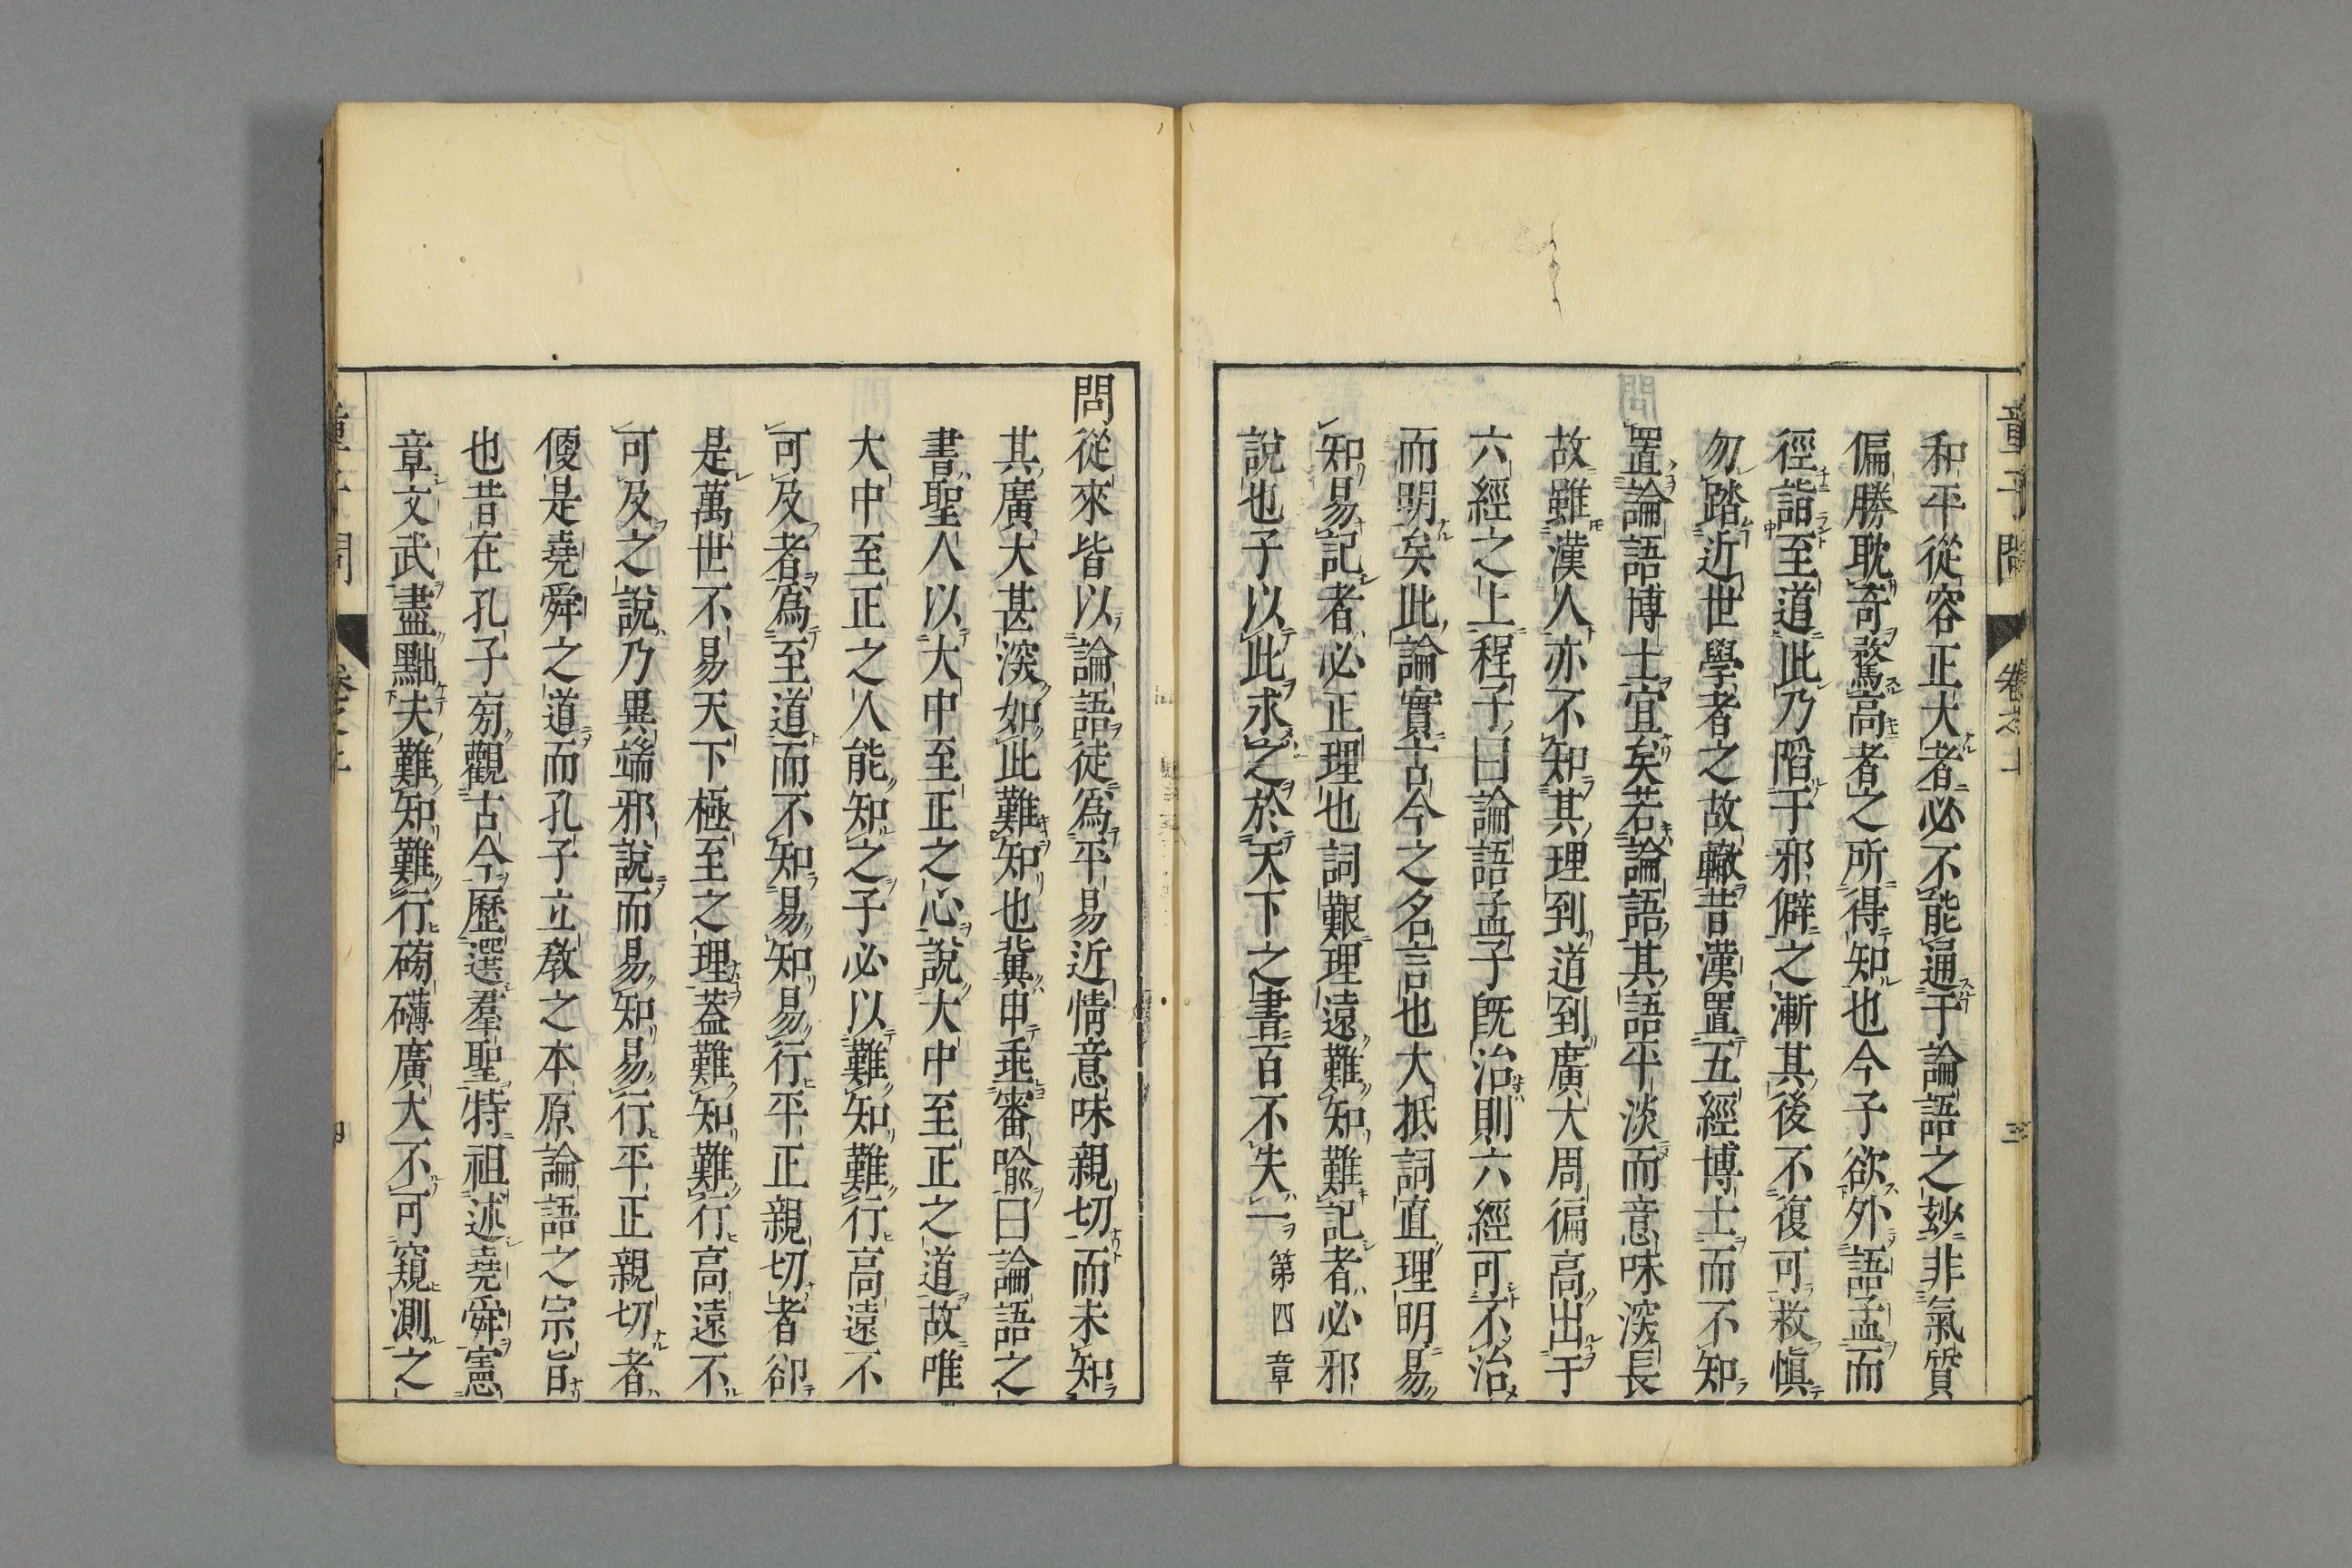 和平從容正大者必不能通于論語之妙非氣質
偏勝耽奇騖高者之所得知也今子欲外語孟而
徑詣至道此乃陷于邪僻之漸其後不復可救愼
勿踏近世學者之故轍昔漢置五經博士而不知
置論語博士宜矣若論語其語平淡而意味深長
故雖漢人亦不知其理到道到廣大周徧高出于
六經之上程子曰論語孟子既治則六經可不治
而明矣此論實古今之名言也大抵詞直理明易
知易記者必正理也詞艱理遠難知難記者必邪
說也子以此求之於天下之書百不失一 第四章
問從來皆以論語徒爲平易近情意味親切而未知
其廣大甚深如此難知也冀申垂審喩曰論語之
書聖人以大中至正之心說大中至正之道故唯
大中至正之人能知之子必以難知難行高遠不
可及者爲至道而不知易知易行平正親切者卻
是萬世不易天下極至之理蓋難知難行高遠不
可及之說乃異端邪說而易知易行平正親切者
便是堯舜之道而孔子立敎之本原論語之宗旨
也昔在孔子旁觀古今歷選羣聖特祖述堯舜憲
章文武盡黜夫難知難行磅礴廣大不可窺測之